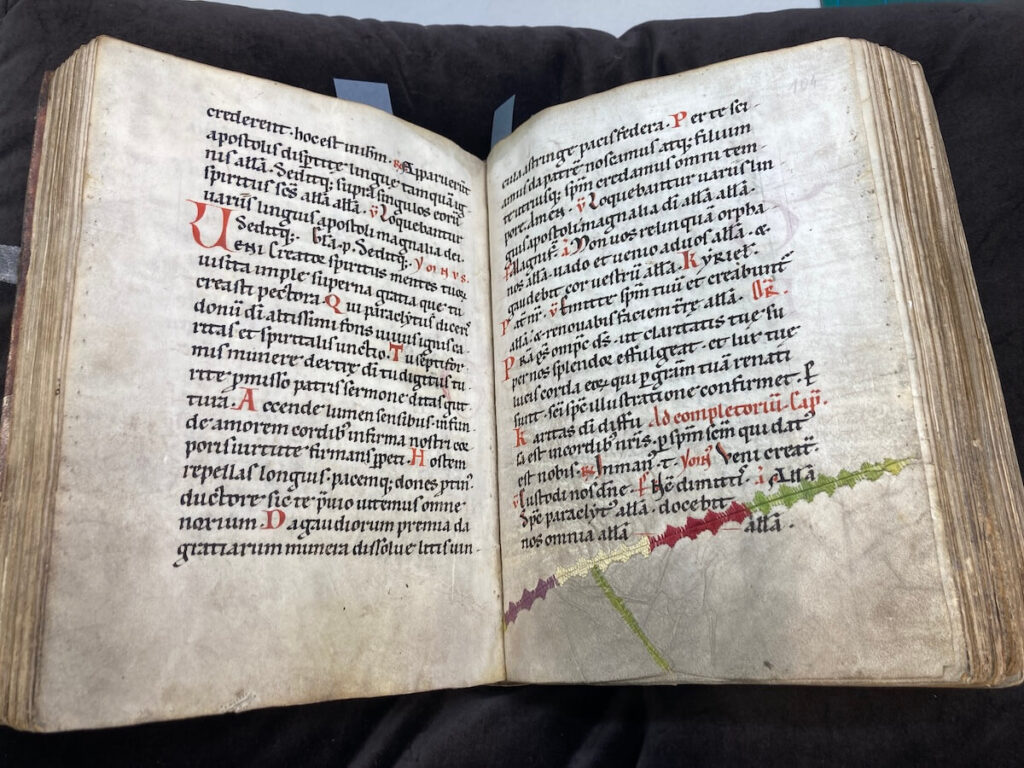 crederent · hoc est in ihm̄ · R̄ Apparuerit
apostolis disptitę linguę tamquā ig
nis allā. Seditq; supra singulos eorū
spiritus scs̄ allā allā · v̄ Loquebantur
variis linguis apostoli magnalia dei ·
Seditq; · Gl̄a · p · Seditq; · YmNVS ·
VENI Creator spiritus mentes tuorū
visita imple superna gratia que tu
creasti pectora · Qui paraclytus diceris
donū dī altissimi fons vivus ignis ca
ritas et spiritalis unctio · Tu septifor
mis munere dextrę dī tu digitus tu
rite p̄misso patris sermone ditas gut
tura · Accende lumen sensibus · infun
de amorem cordib; infirma nostri cor
poris virtute firmans ppeti · Hostem
repellas longius · pacemq; dones ptin̄ ·
ductore sic te p̄vio vitemus omne
noxium · Da gaudiorum premia da
gratiarum munera dissolve litis vin ·
104
cula astringe pacis federa · Per te sci ·
amus da patrē noscamus atq; filium
te utriusq; spm̄ credamus omni tem
pore · AmEN · v̄ Loquebantur variis lin
guis apostoli magnalia dī allā allā ·
Magnif̄ · Non vos relinquā orpha
nos allā · vado et venio ad vos allā · &
gaudebit cor vestrū allā · Kyriel̄ ·
Pat nr̄ · v̄ Emitte spm̄ tuū et creabunt̄
allā · & renovabis faciem tr̄e allā ·
Pr̄a qs̄ omp̄c ds̄ · ut claritatis tuę su
per nos splendor effulgeat · et lux tuę
lucis corda eor̄ qui p gr̄am tuā renati
sunt · sci sp̄c illustratione confirmet · P̄
Karitas dī diffu Ad completoriū · Cap̄ ·
sa est in cordib; nr̄is · p spm̄ scm̄ qui dat̄
est nobis · R̄ In man̄ · t · Ymn̄ Veni creat̄ ·
v̄ Custodi nos dn̄e · Nc̄ dimittī · Allā
Sp̄c paraclyt̄ allā · docebit
nos omnia allā allā ·